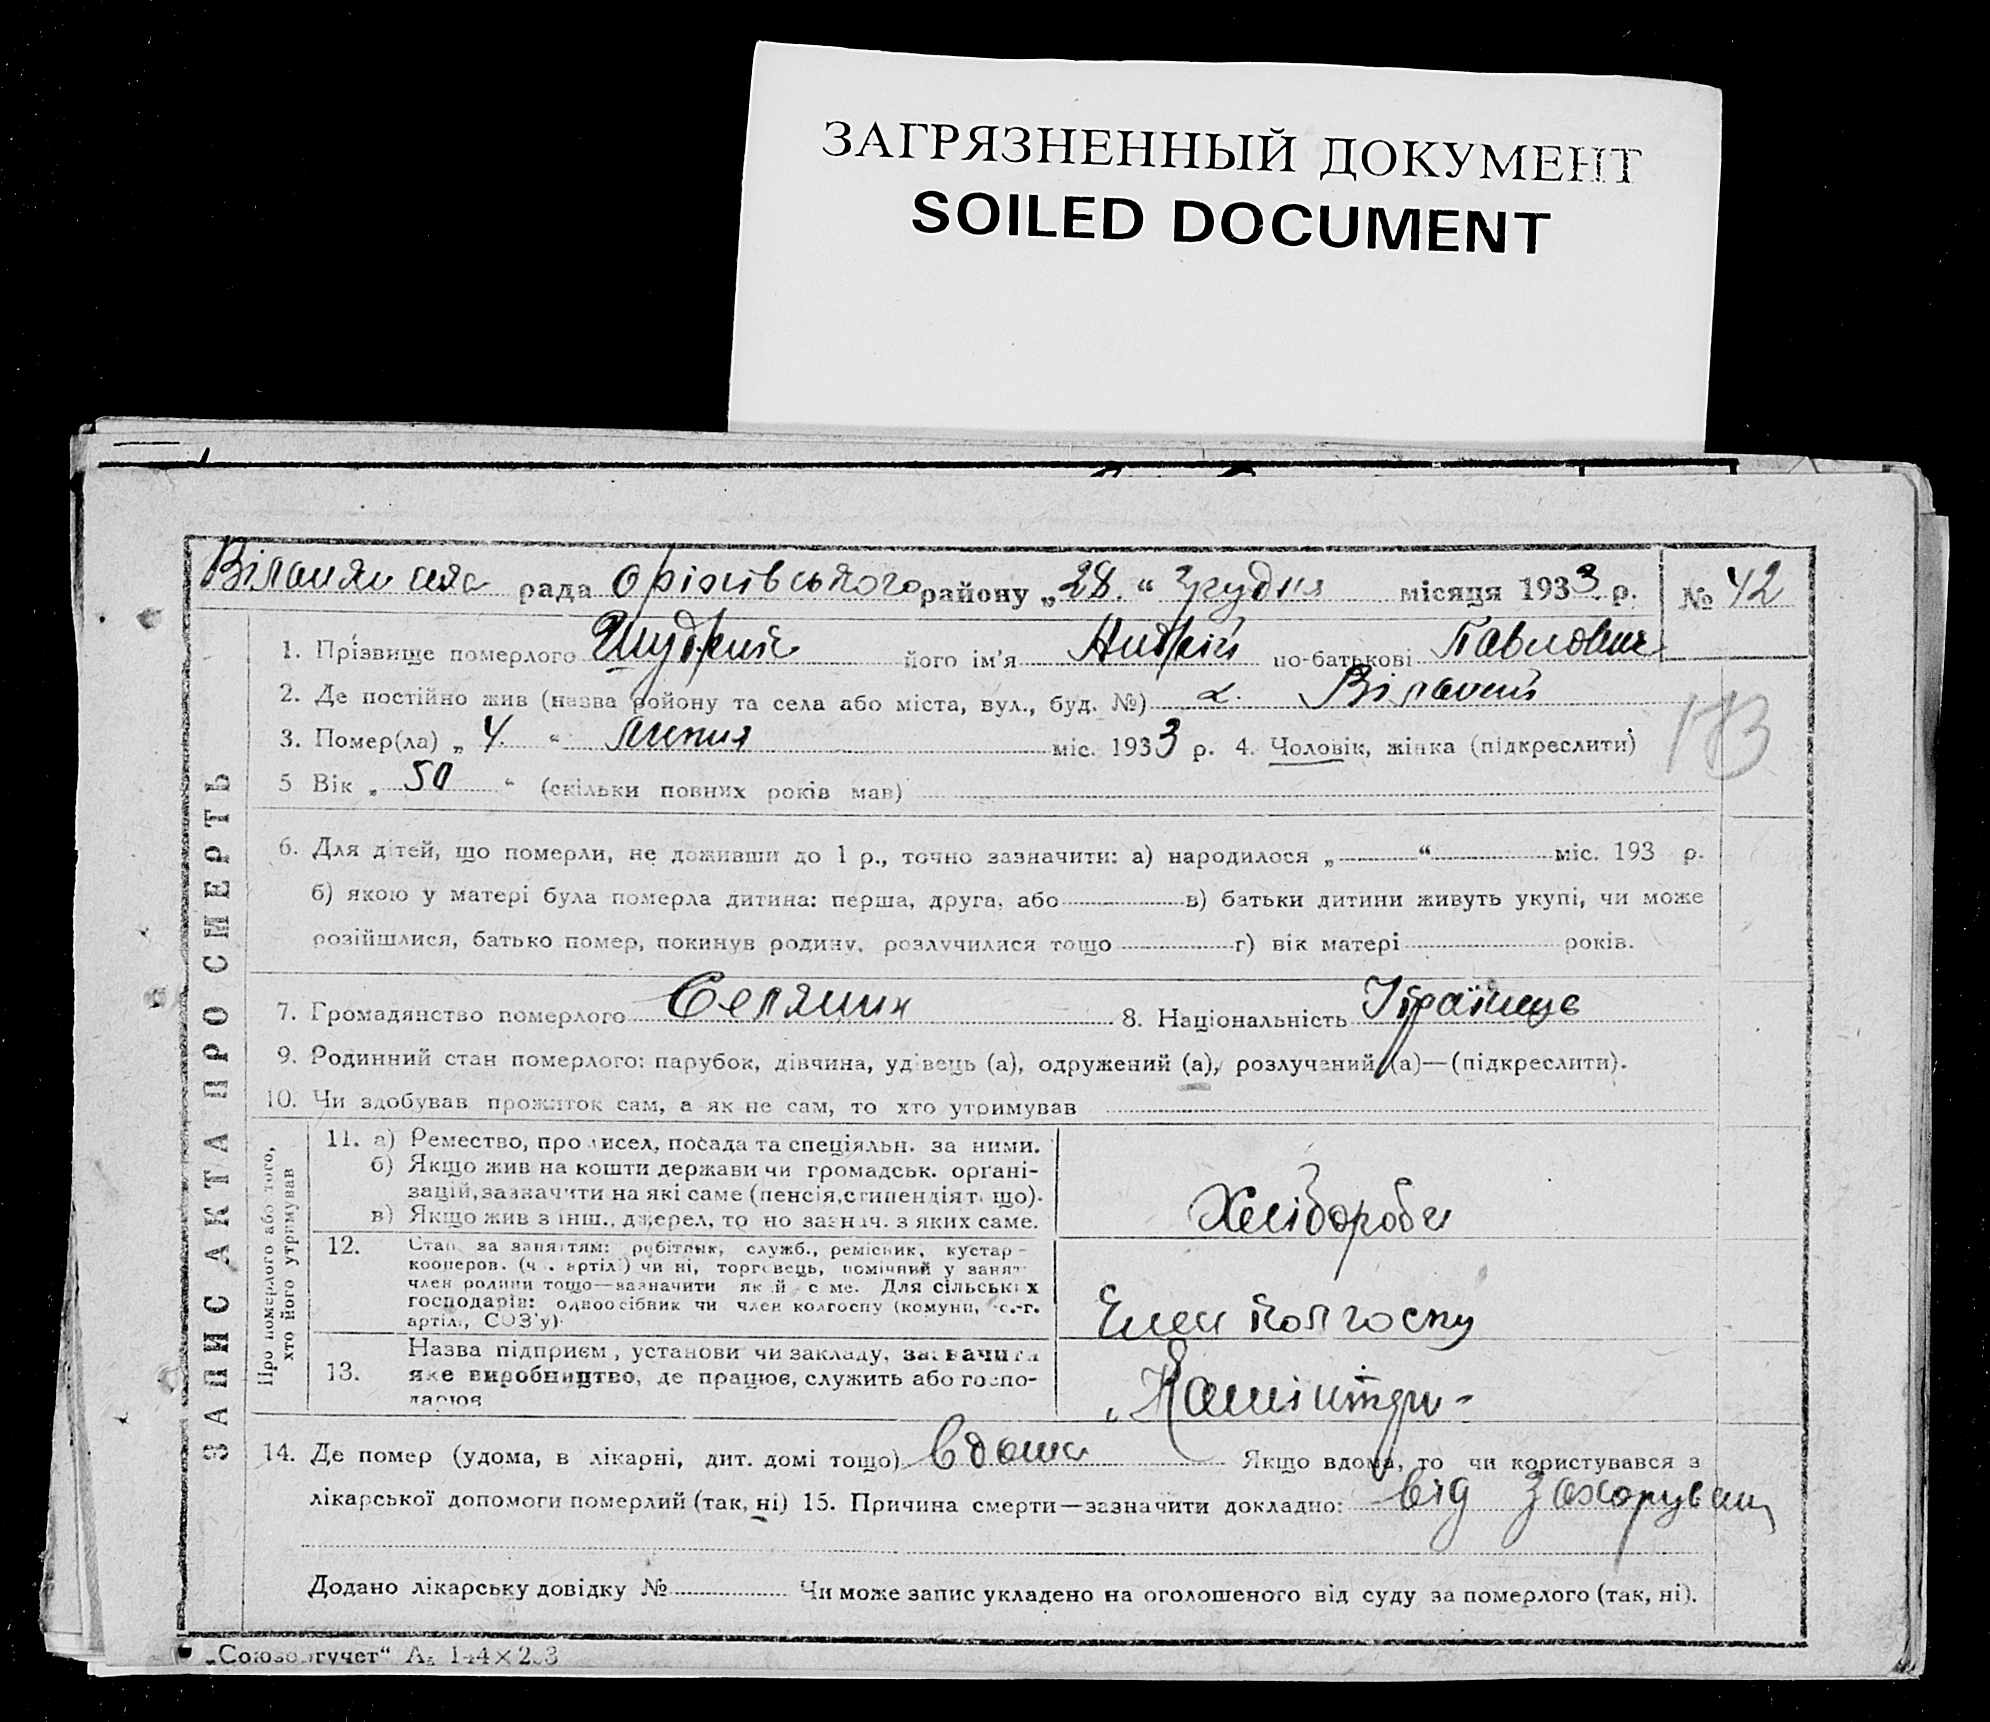 ЗАГРЯЗНЕННЫЙ ДОКУМЕНТ
SOILED DOCUMENT
рада Оріхівського району „28.“ Грудня місяця 1933 р. № 42
ЗАПИС АКТА ПРО СМЕРТЬ
1. Прізвище померлого його ім'я Андрій по-батькові Павлович
2. Де постійно жив (назва району та села або міста, вул., буд. №) с.
3. Помер(ла) „4“ липня міс. 1933 р. 4. Чоловік, жінка (підкреслити)
173
5 Вік „50“ (скільки повних років мав)
6. Для дітей, що померли, не доживши до 1 р., точно зазначити: а) народилося „ “ міс. 193 р.
б) якою у матері була померла дитина: перша, друга, або в) батьки дитини живуть укупі, чи може
розійшлися, батько помер, покинув родину, розлучилися тощо г) вік матері років.
7. Громадянство померлого Селянин 8. Національність Українець
9. Родинний стан померлого: парубок, дівчина, удівець (а), одружений (а), розлучений (а)—(підкреслити).
10. Чи здобував прожиток сам, а як не сам, то хто утримував
Про померлого або того, хто його утримував
11. а) Ремество, промисел, посада та спеціяльн. за ними.
б) Якщо жив на кошти держави чи громадськ. органі-
зацій, зазначити на які саме (пенсія, стипендія т. що).
в) Якщо жив з інш., джерел, то но зазнач. з яких саме.
Хлібороб
12. Стан за заняттям: робітник, служб., ремісник, кустар -
кооперов. (ч. артіл.) чи ні, торговець, помічний у занят
член родини тощо—зазначити який саме. Для сільських
господарів: одноосібник чи член колгоспу (комуни, с.-г.
артілі, СОЗ'у).
Член колгоспу
13. Назва підприєм., установи чи закладу, зазначити
яке виробництво, де працює, служить або госпо-
дарює
14. Де помер (удома, в лікарні, дит. домі тощо) вдома Якщо вдома, то чи користувався з
лікарської допомоги померлий (так, ні) 15. Причина смерти—зазначити докладно: від
Додано лікарську довідку № Чи може запис укладено на оголошеного від суду за померлого (так, ні).